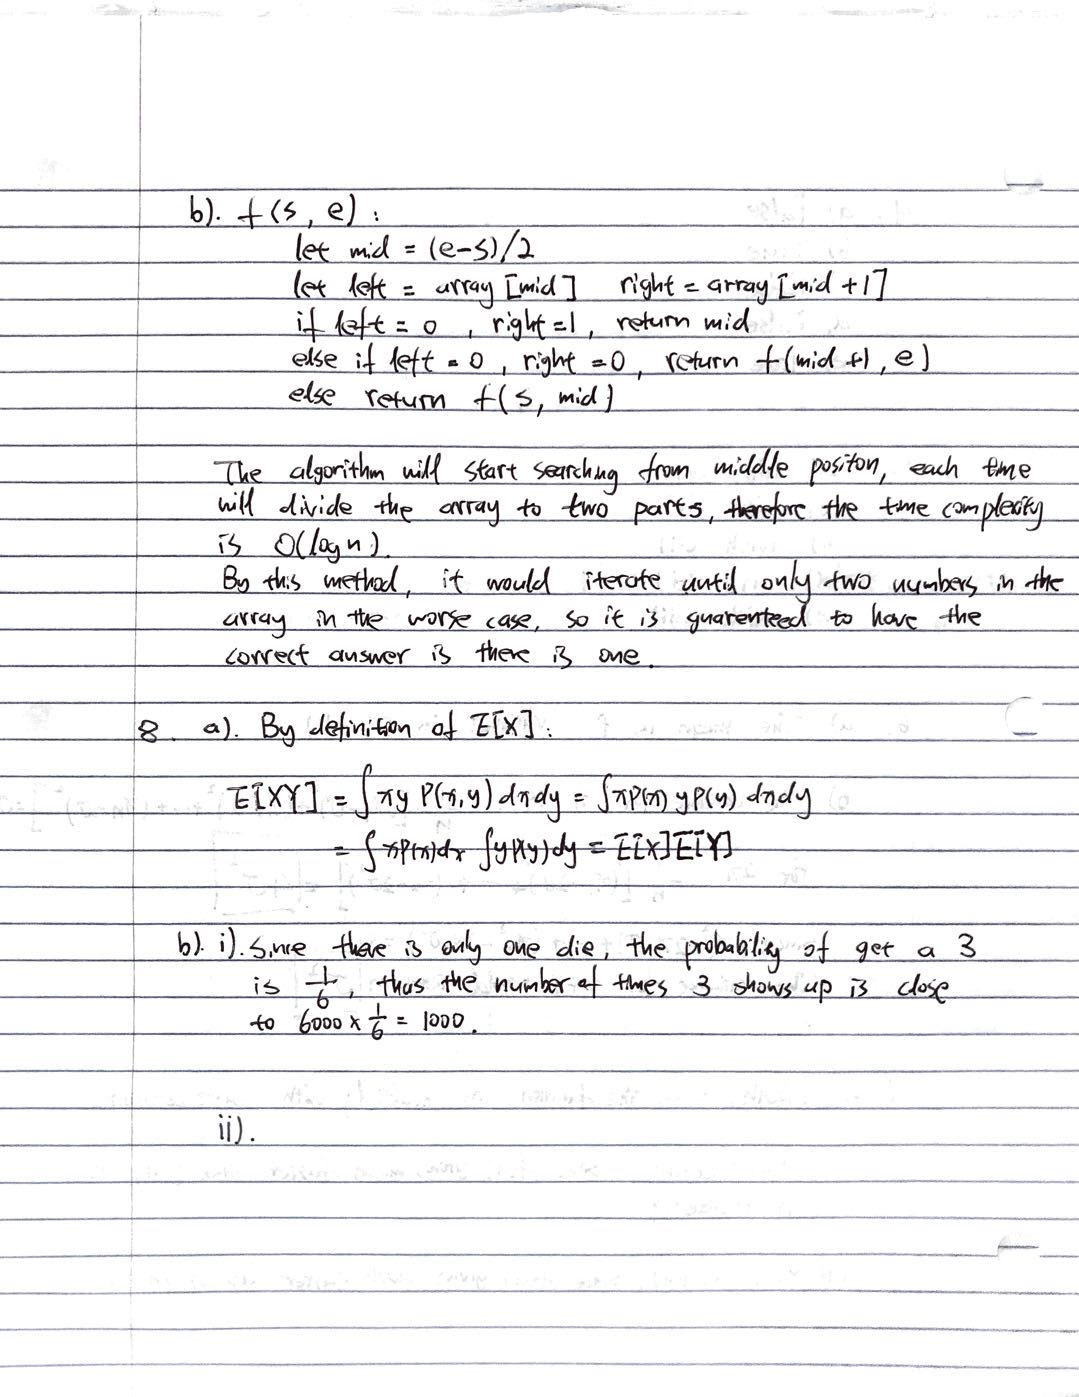 b). f(s, e) :
let mid = (e-s)/2
let left = array [mid] right = array [mid +1]
if left = 0 , right =1, return mid
else if left = 0 , right =0, return f(mid +1, e)
else return f(s, mid)
The algorithm will start searching from middle positon, each time
will divide the array to two parts, therefore the time complexity
is O(log n).
By this method, it would iterate until only two numbers in the
array in the worse case, so it is guarenteed to have the
correct answer is there is one.
8. a). By definition of E[X]:
E[XY] = ∫xy P(x,y) dxdy = ∫xP(x) yP(y) dxdy
= ∫xP(x)dx ∫yP(y)dy = E[X]E[Y]
b). i). Since there is only one die, the probability of get a 3
is 1/6, thus the number of times 3 shows up is close
to 6000 × 1/6 = 1000.
ii).